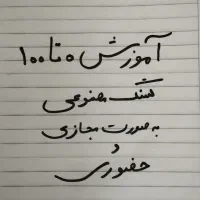 آموزش ۰ تا ۱۰۰
سنگ مصنوعی
به صورت مجازی
و
حضوری